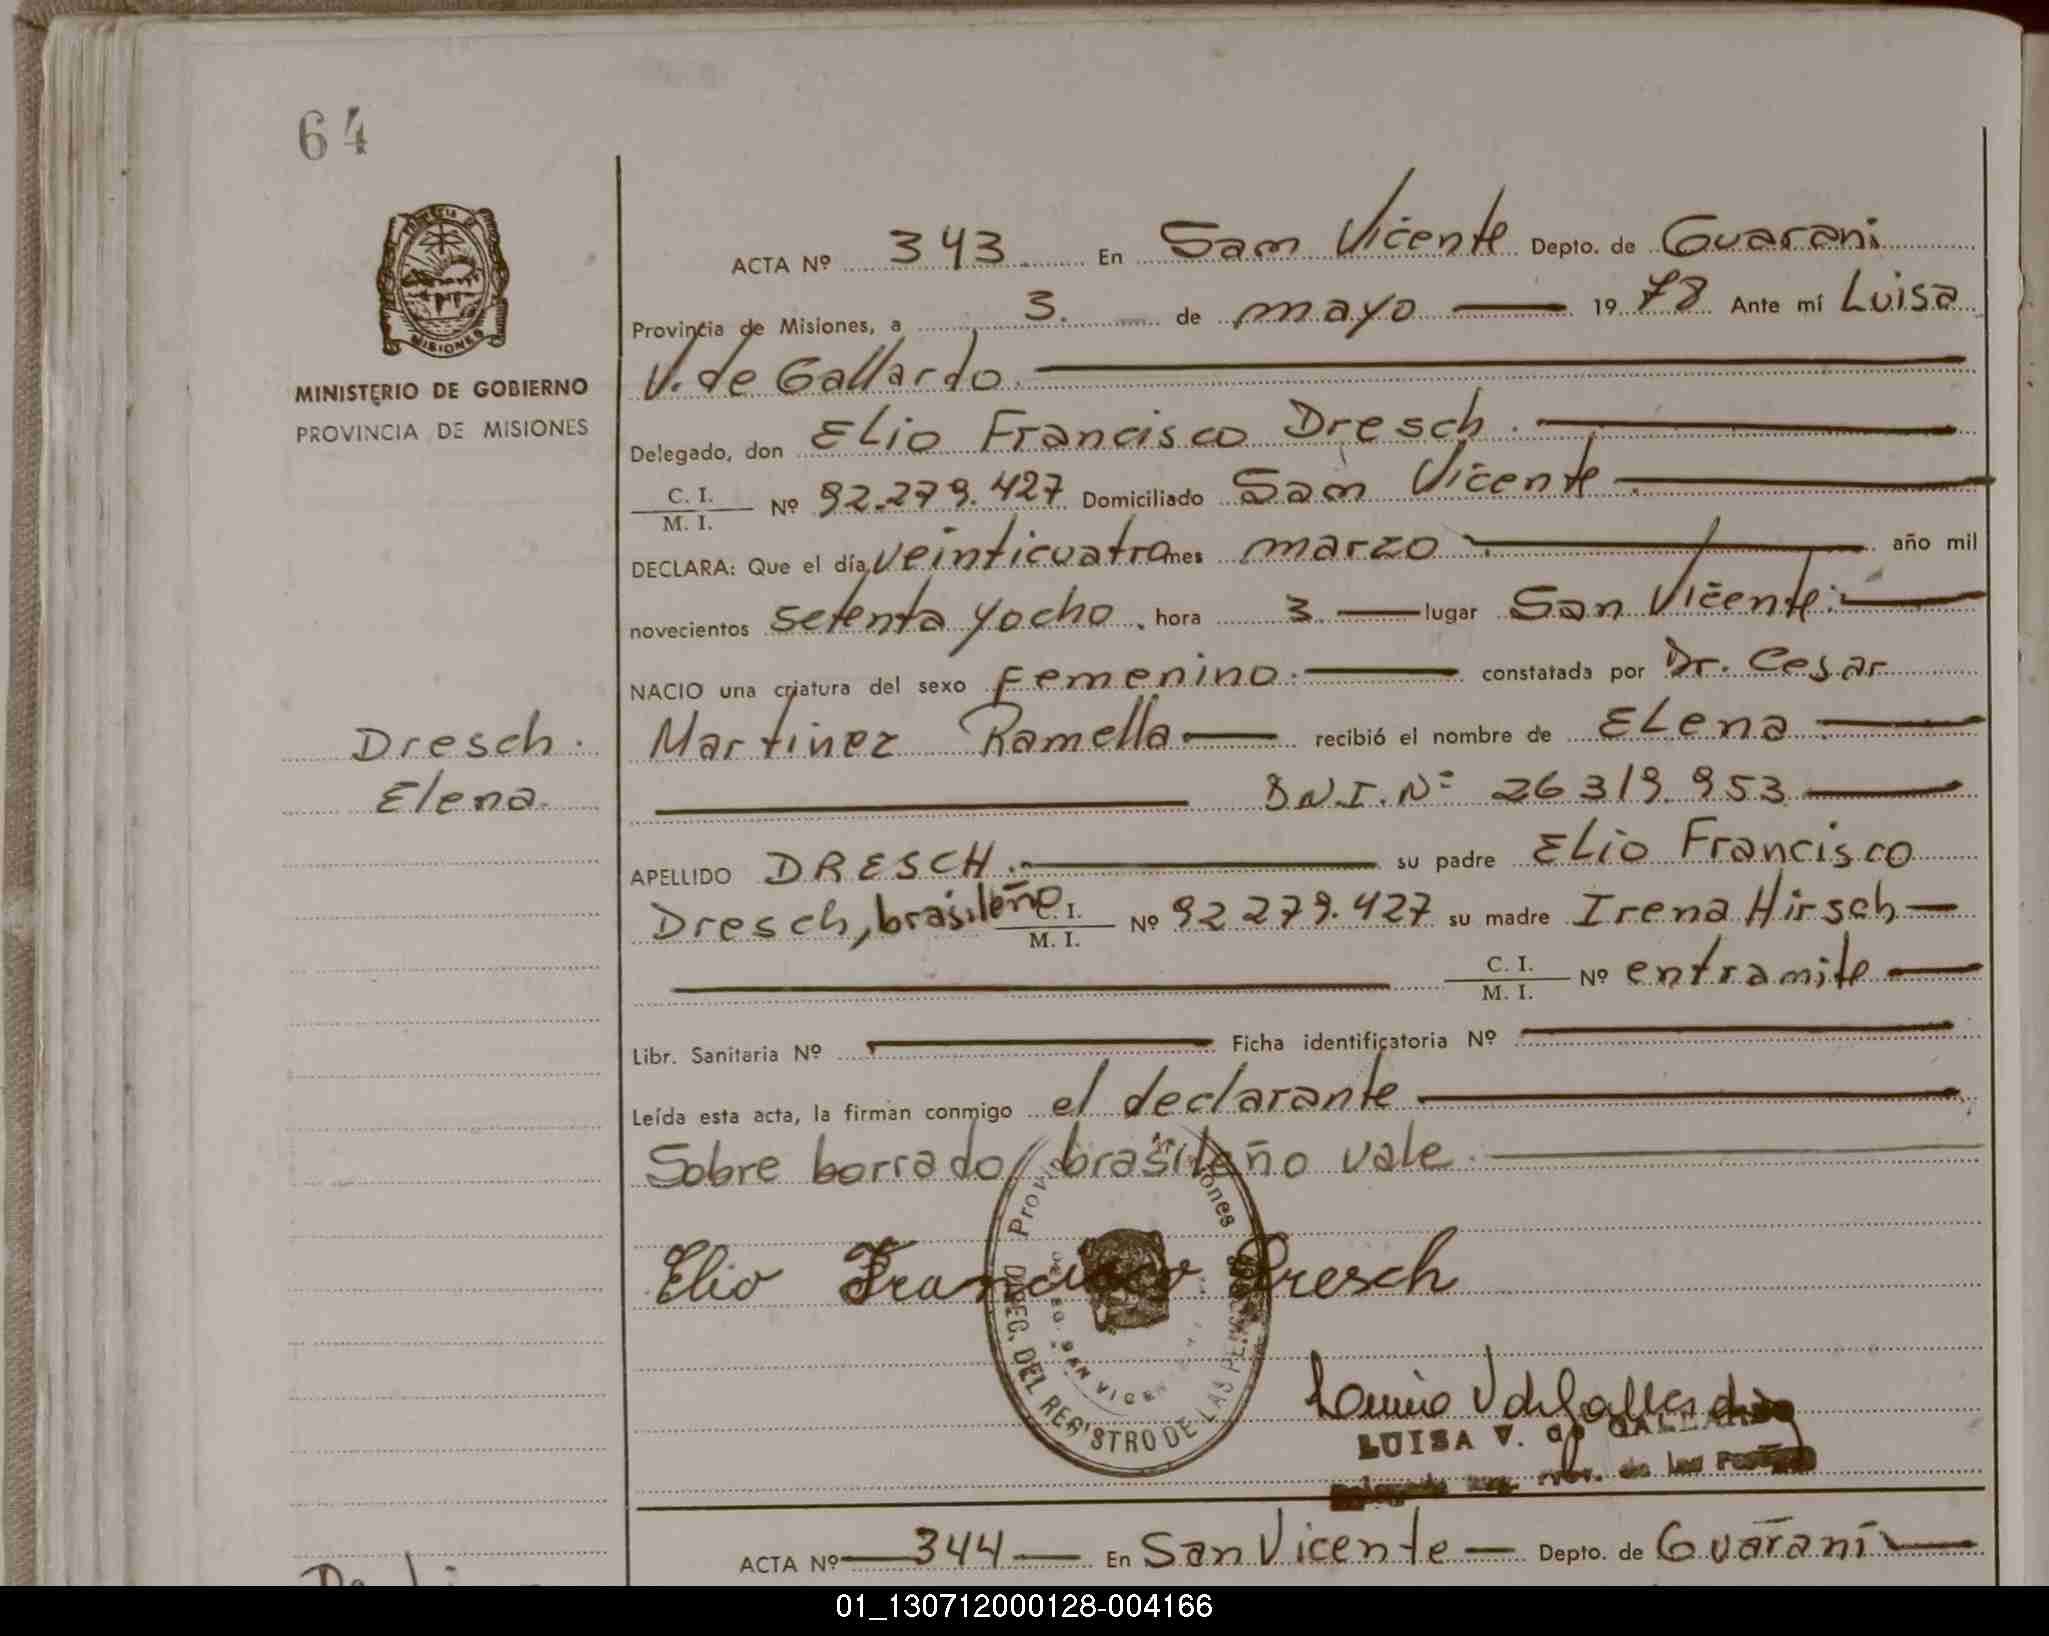 64
MINISTERIO DE GOBIERNO
PROVINCIA DE MISIONES
Dresch.
Elena.
ACTA Nº 343 En San Vicente Depto. de Guarani
Provincia de Misiones, a 3. de mayo 1978 Ante mí Luisa
V. de Gallardo
Delegado, don Elio Francisco Dresch.
C. I. / M. I. Nº 92.279.427 Domiciliado San Vicente
DECLARA: Que el día veinticuatro mes marzo año mil
novecientos setenta y ocho. hora 3 lugar San Vicente.
NACIO una criatura del sexo Femenino. constatada por Dr. Cesar
Martinez Ramella recibió el nombre de Elena
D.N.I. Nº 26 319 953
APELLIDO DRESCH. su padre Elio Francisco
Dresch, brasileño C. I. / M. I. Nº 92 279.427 su madre Irena Hirsch
C. I. / M. I. Nº entramite
Libr. Sanitaria Nº Ficha identificatoria Nº
Leída esta acta, la firman conmigo el declarante
Sobre borrado/ brasileño vale.
Elio Francisco Dresch
DIREC. DEL REGISTRO DE LAS PERSONAS
LUISA V. de GALLARDO
ACTA Nº 344 En San Vicente Depto. de Guaraní
01_130712000128-004166